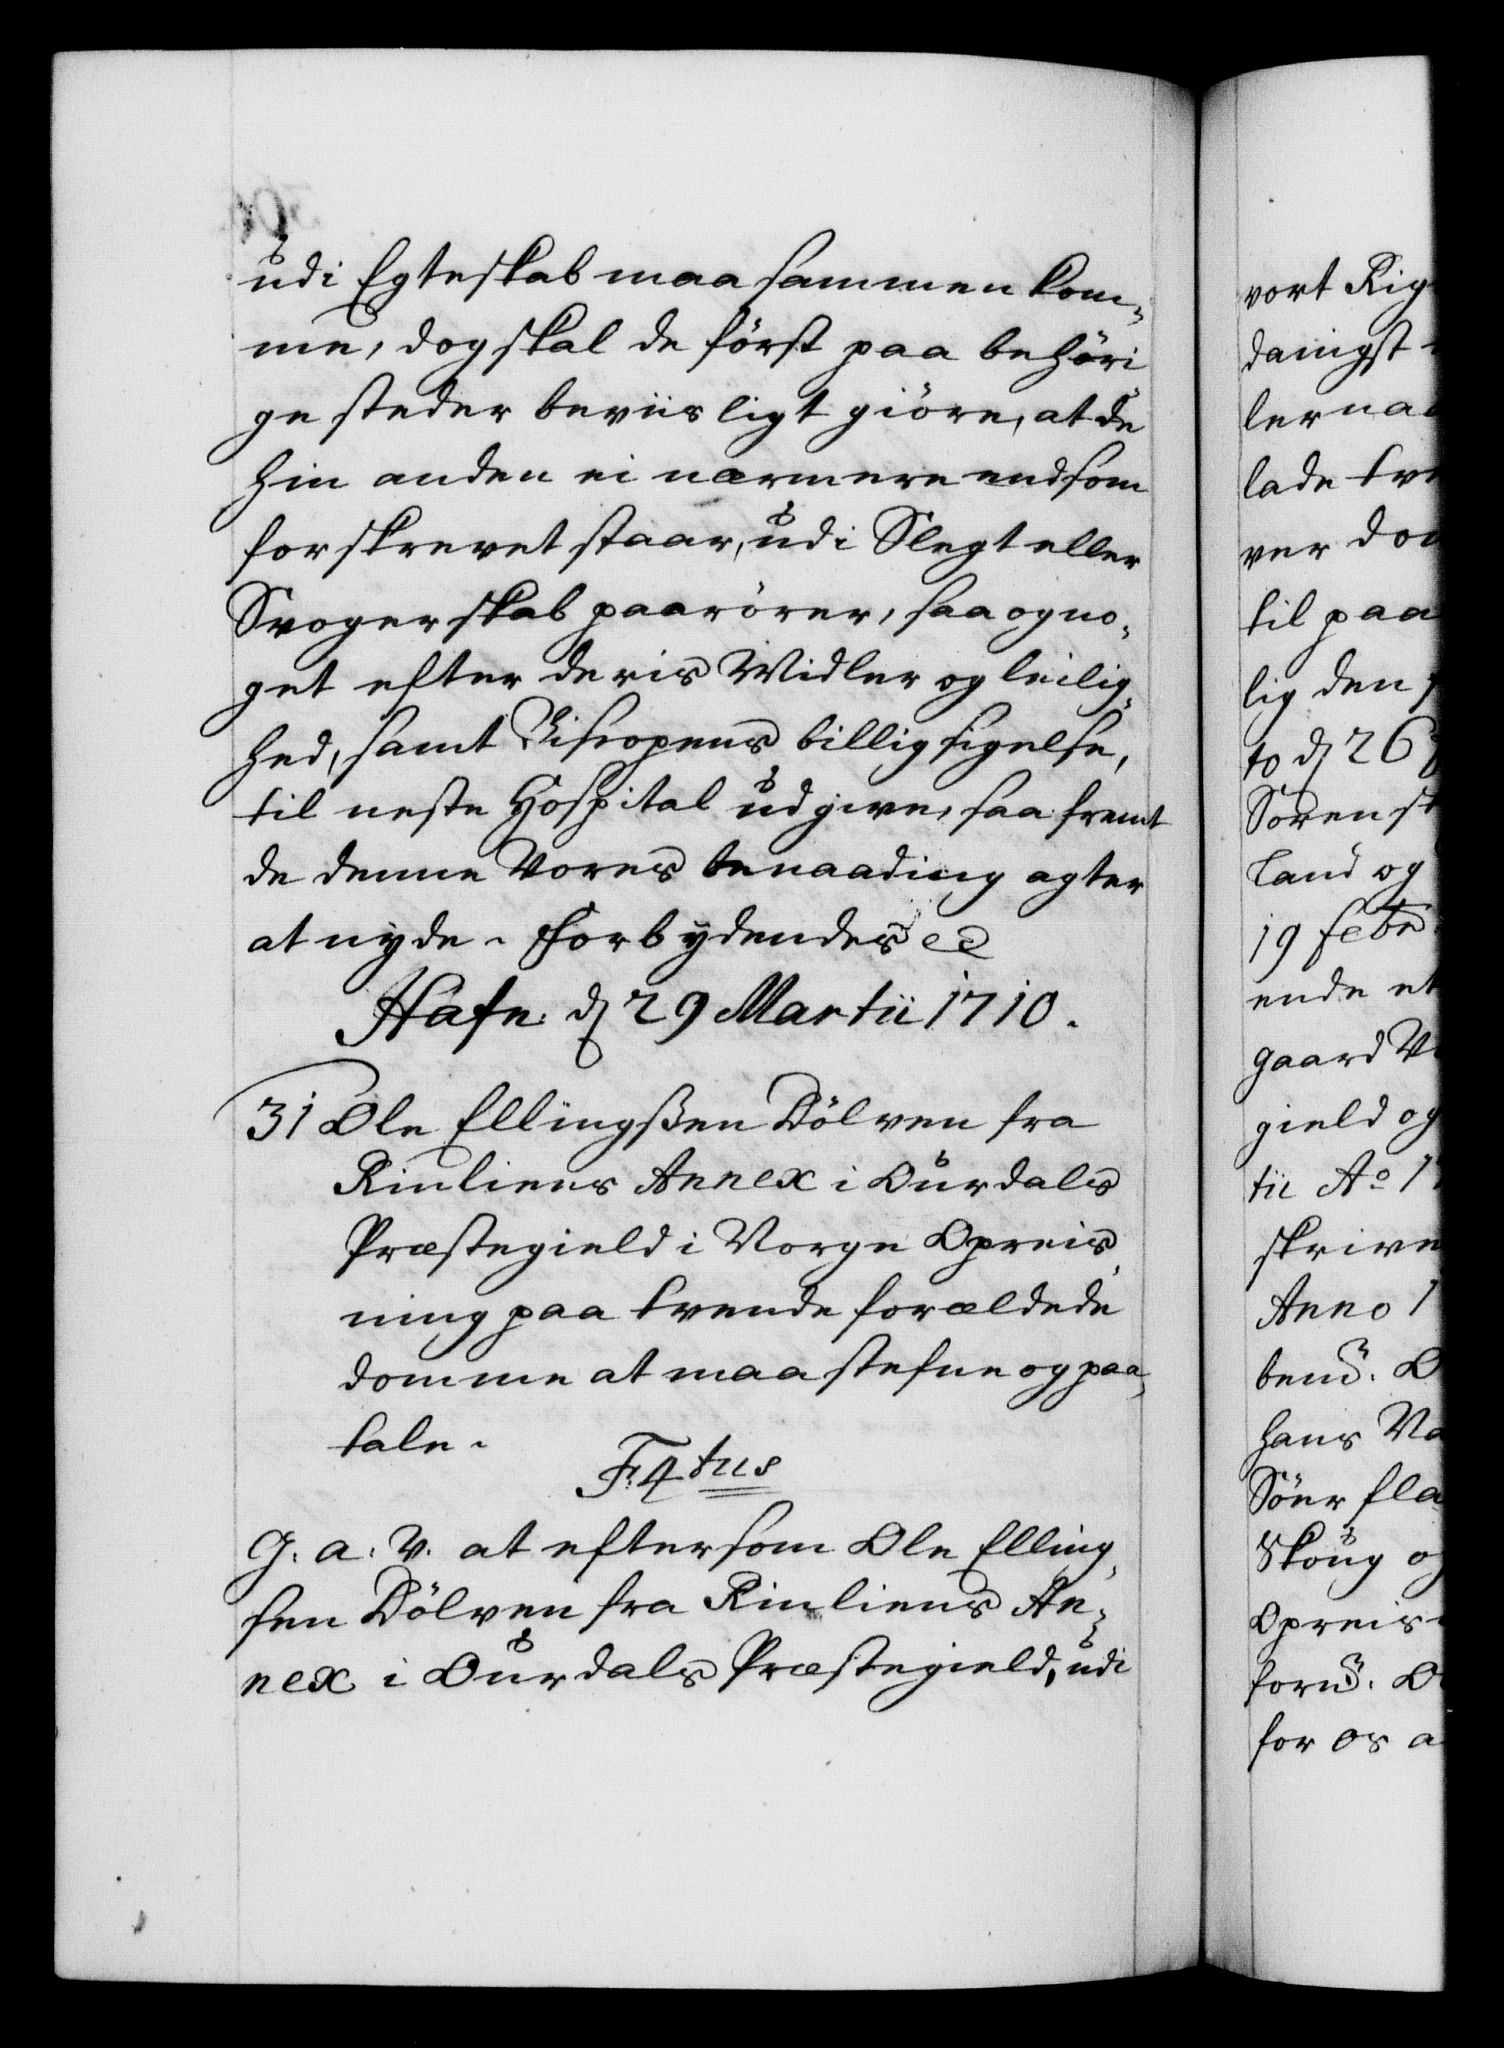 udi Egteskab maa sammen kom¬
me, dog skal de först paa behöri
ge steder beviisligt giöre, at de
hin anden ei nærmere end som
forskrevet staar, udi Slegt eller
Svogerskab paarörer, saa og no¬
get efter deris Midler og leilig¬
hed, samt Biscopens billigsigelse,
til neste Hospital udgive, saa fremt
de denne Vores benaading agter
at nyde. Forbydendes
Hafn. d 29 Martii 1710.
31 Ole Ellingßen Dölven fra
Rinliens Annex i Ourdals
Præstegield i Norge Opreis¬
ning paa tvende forældede
domme at maa stefne og paa¬
tale.
F. 4tus
G. a. V. at eftersom Ole Elling¬
sen Dölven fra Rinliens An¬
nex i Ourdals Præstegield, udi
vort Rig
danigst
ler naa
lade
ver dom
til paa
lig den
to d 26
Sorensk
land og
19 Febr.
ende et
gaard
gield og
tii Ao 1
skrive
Anno 1
bend. O
hans
Söer fla
Skoug og
Opreis
fornd. O
for os a